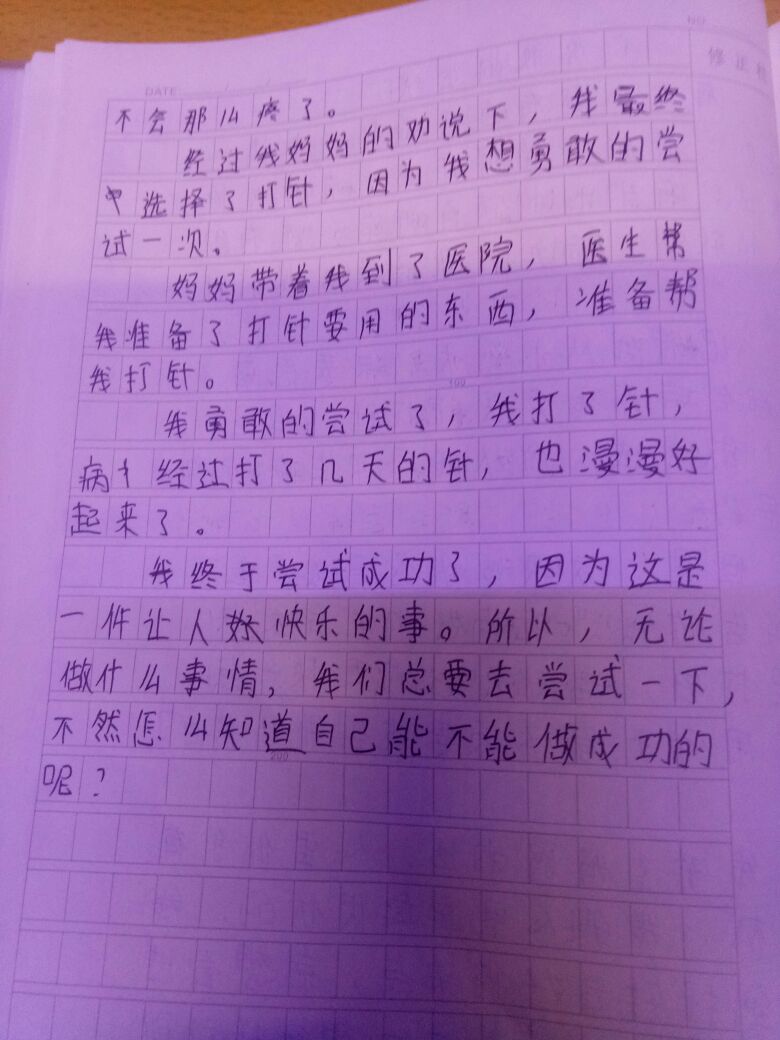 DATE
NO
修正
不会那么疼了。
经过我妈妈的劝说下，我最终
选择了打针，因为我想勇敢的尝
试一次。
妈妈带着我到了医院，医生帮
我准备了打针要用的东西，准备帮
我打针。
100
我勇敢的尝试了，我打了针，
病经过打了几天的针，也漫漫好
起来了。
我终于尝试成功了，因为这是
一件让人快乐的事。所以，无论
做什么事情，我们总要去尝试一下，
不然怎么知道自己能不能做成功的
200
呢？